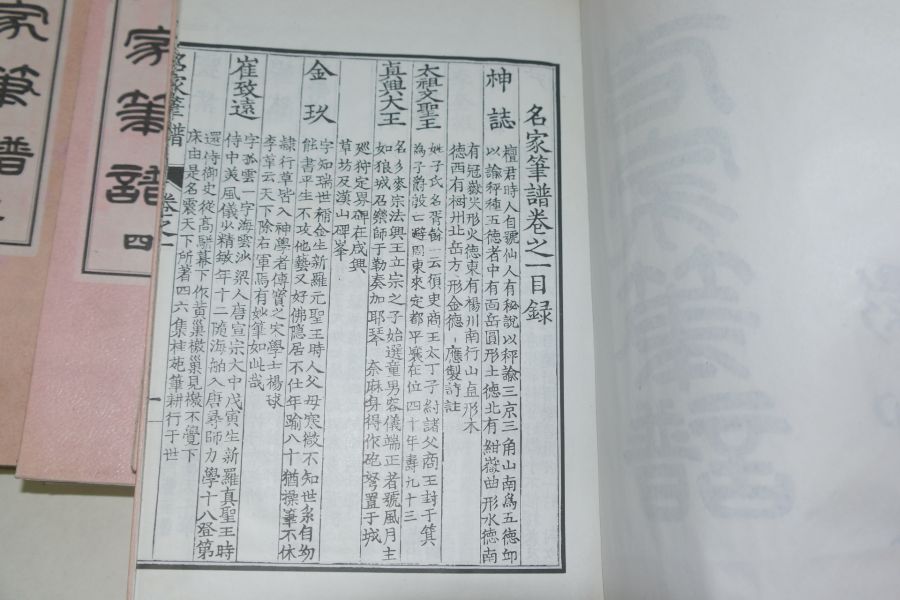 名家筆譜卷之一目録
神誌
檀君時人自號仙人有秘說以秤諭三京三角山南爲五德邱
以諭秤種五德者中有面岳圓形土德北有紺嶽曲形水德南
有冠嶽尖形火德東有楊川南行山直形木
德西有樹州北岳方形金德 應製詩註
太祖文聖王
姓子氏名胥餘一云須臾商王太丁子紂諸父商王封于箕
為子爵說亡避周東來定都平壤在位四十年壽九十三
真興大王
名彡麥宗法興王立宗之子始選童男容儀端正者號風月主
如狼城召樂師于勒奏加耶琴 奈麻身得作砲弩置于城
廵狩定界碑在咸興
草坊及漢山碑峯
金玖
字知瑞世稱金生新羅元聖王時人父母寒微不知世系自幼
能書平生不攻他藝又好佛隐居不仕年踰八十猶操筆不休
隷行草皆入神學者傳寶之宋學士楊球
李革云天下除右軍焉有妙筆如此哉
崔致遠
字孤雲一字海雲沙梁人唐宣宗大中戊寅生新羅真聖王時
侍中美風儀少精敏年十二隨海舶入唐尋師力學十八登第
還侍御史從高騈幕下作黄巢檄巢見檄不覺下
床由是名震天下所著四六集桂苑筆耕行于世
名家筆譜
卷之一
一
家筆譜
四
家筆譜